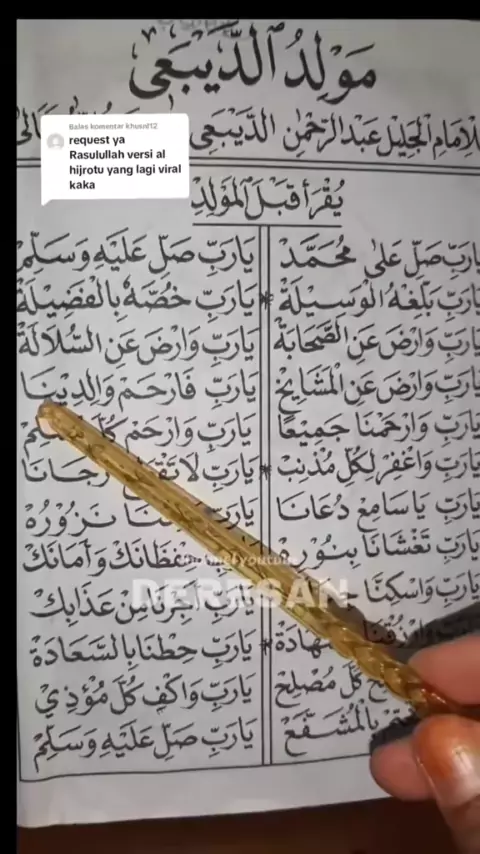 مَوْلِدُ الدَّيْبَعِي
لِلْإِمَامِ الْجَلِيْلِ عَبْدِ الرَّحْمٰنِ الدَّيْبَعِي
Balas komentar khusnl12
request ya
Rasulullah versi al
hijrotu yang lagi viral
kaka
يُقْرَأُ قَبْلَ الْمَوْلِدِ
يَارَبِّ صَلِّ عَلَى مُحَمَّدْ يَارَبِّ صَلِّ عَلَيْهِ وَسَلِّمْ
يَارَبِّ بَلِّغْهُ الْوَسِيْلَةْ * يَارَبِّ خُصَّهُ بِالْفَضِيْلَةْ
يَارَبِّ وَارْضَ عَنِ الصَّحَابَةْ يَارَبِّ وَارْضَ عَنِ السُّلَالَةْ
يَارَبِّ وَارْضَ عَنِ الْمَشَايِخْ يَارَبِّ فَارْحَمْ وَالِدِيْنَا
يَارَبِّ وَارْحَمْنَا جَمِيْعًا يَارَبِّ وَارْحَمْ
يَارَبِّ وَاغْفِرْ لِكُلِّ مُذْنِبْ * يَارَبِّ لَا رَجَانَا
يَارَبِّ يَا سَامِعْ دُعَانَا نَزُوْرُهْ
يَارَبِّ تَغْشَانَا بِنُوْرِهْ حِفْظَانَكْ وَأَمَانَكْ
channel youtube
DERESAN
يَارَبِّ وَاسْكِنَّا مِنْ عَذَابِكْ
يَارَبِّ حِطْنَا بِالسَّعَادَةْ
كُلَّ مُصْلِحْ يَارَبِّ وَاكْفِ كُلَّ مُؤْذِيْ
بِالْمُشَفَّعْ يَارَبِّ صَلِّ عَلَيْهِ وَسَلِّمْ